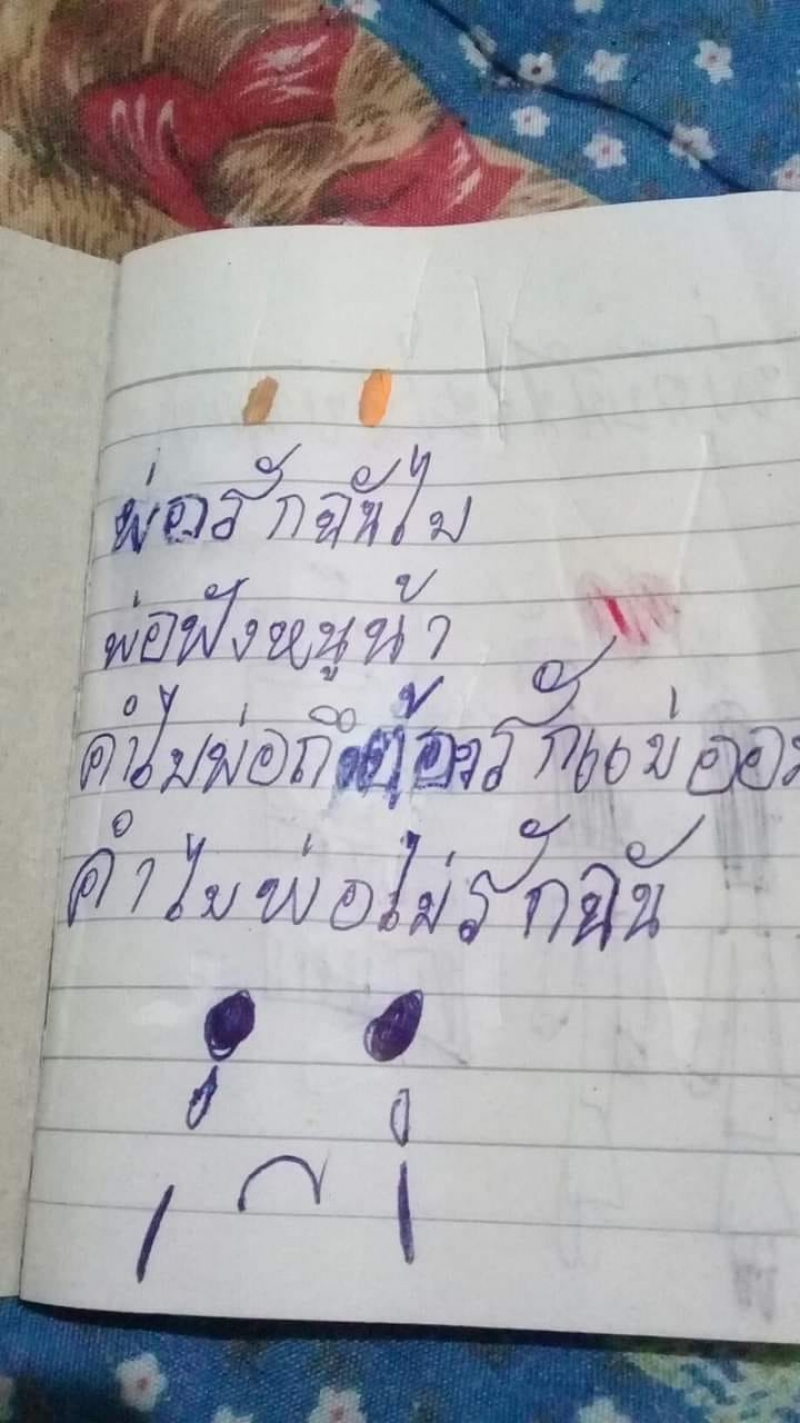 พ่อรักฉันไม
พ่อฟังหนูน้า
คำไมพ่อถึต้องรักแม่ออ
คำไมพ่อไม่รักฉัน